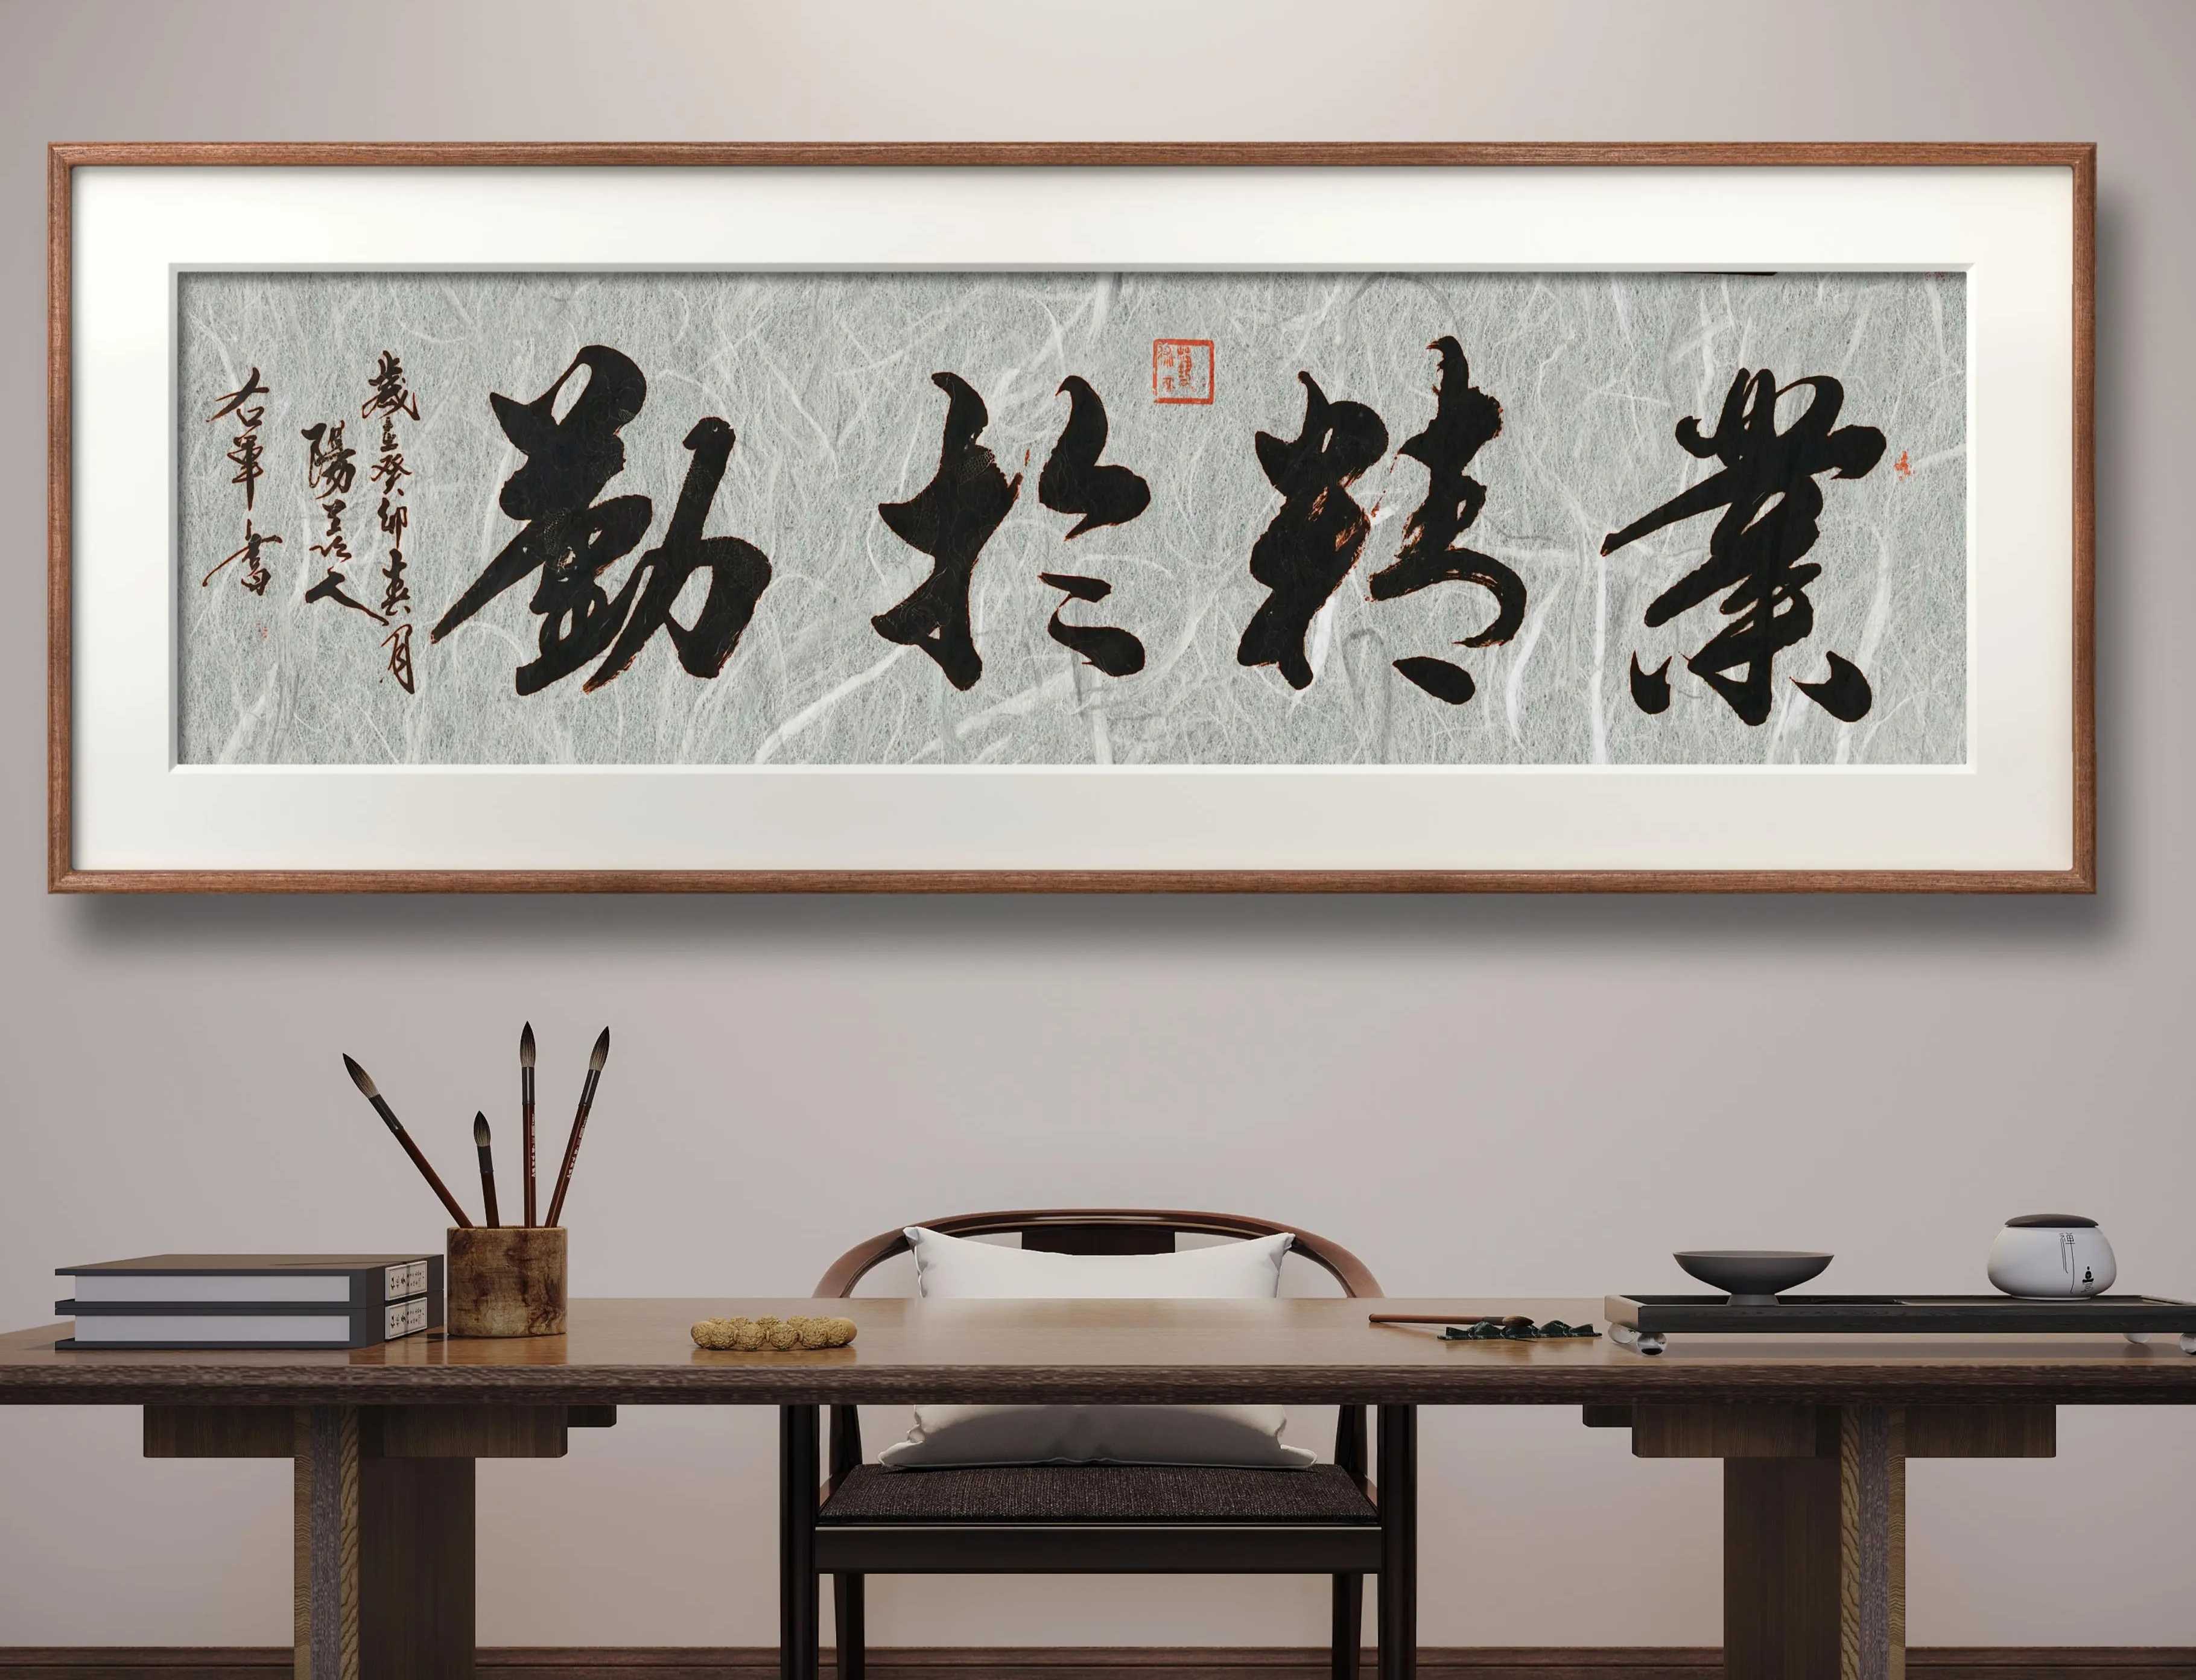 業精於勤
歲在癸卯春月
陽羨人
右軍書
禪